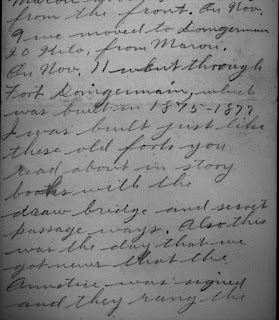 from the front. On Nov.
9 we moved to Longermain
20 Kilo, from Maron.
On Nov. 11 went through
Fort Loingermain, which
was built in 1875-1877
I was built just like
these old forts you
read about in story
books with the
draw bridge and secret
passage ways. Also this
was the day that we
got news that the
Armstice was signed
and they rang the